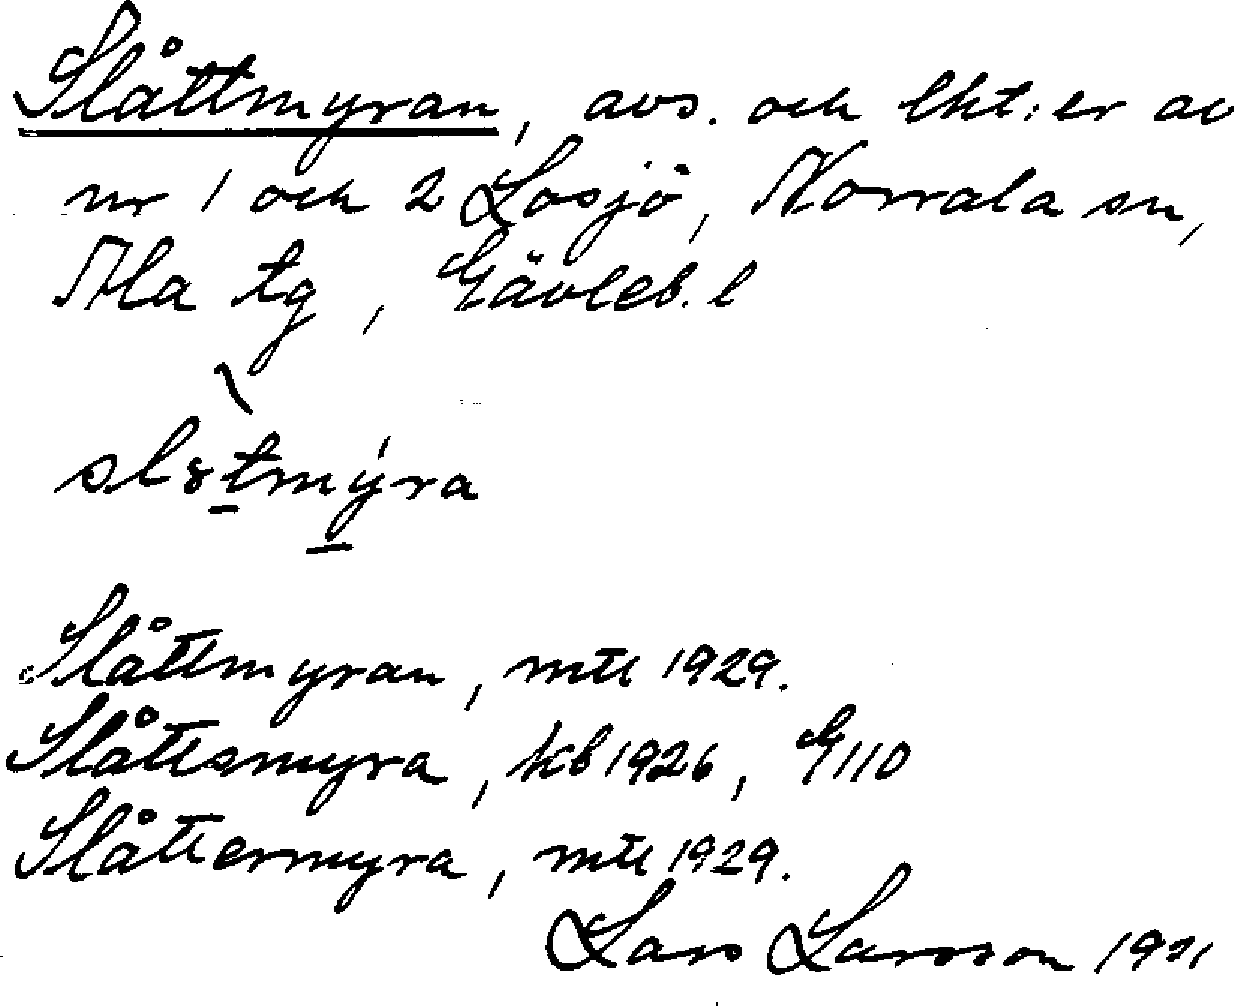 Slåttmyran, avs. och lht:er av
nr 1 och 2 Losjö, Norrala sn,
Ala tg, Gävleb. l
Slåttmyran, mtl 1929.
Slåttsmyra, kb 1926, G110
Slåttermyra, mtl 1929.
Lars Larsson 1931